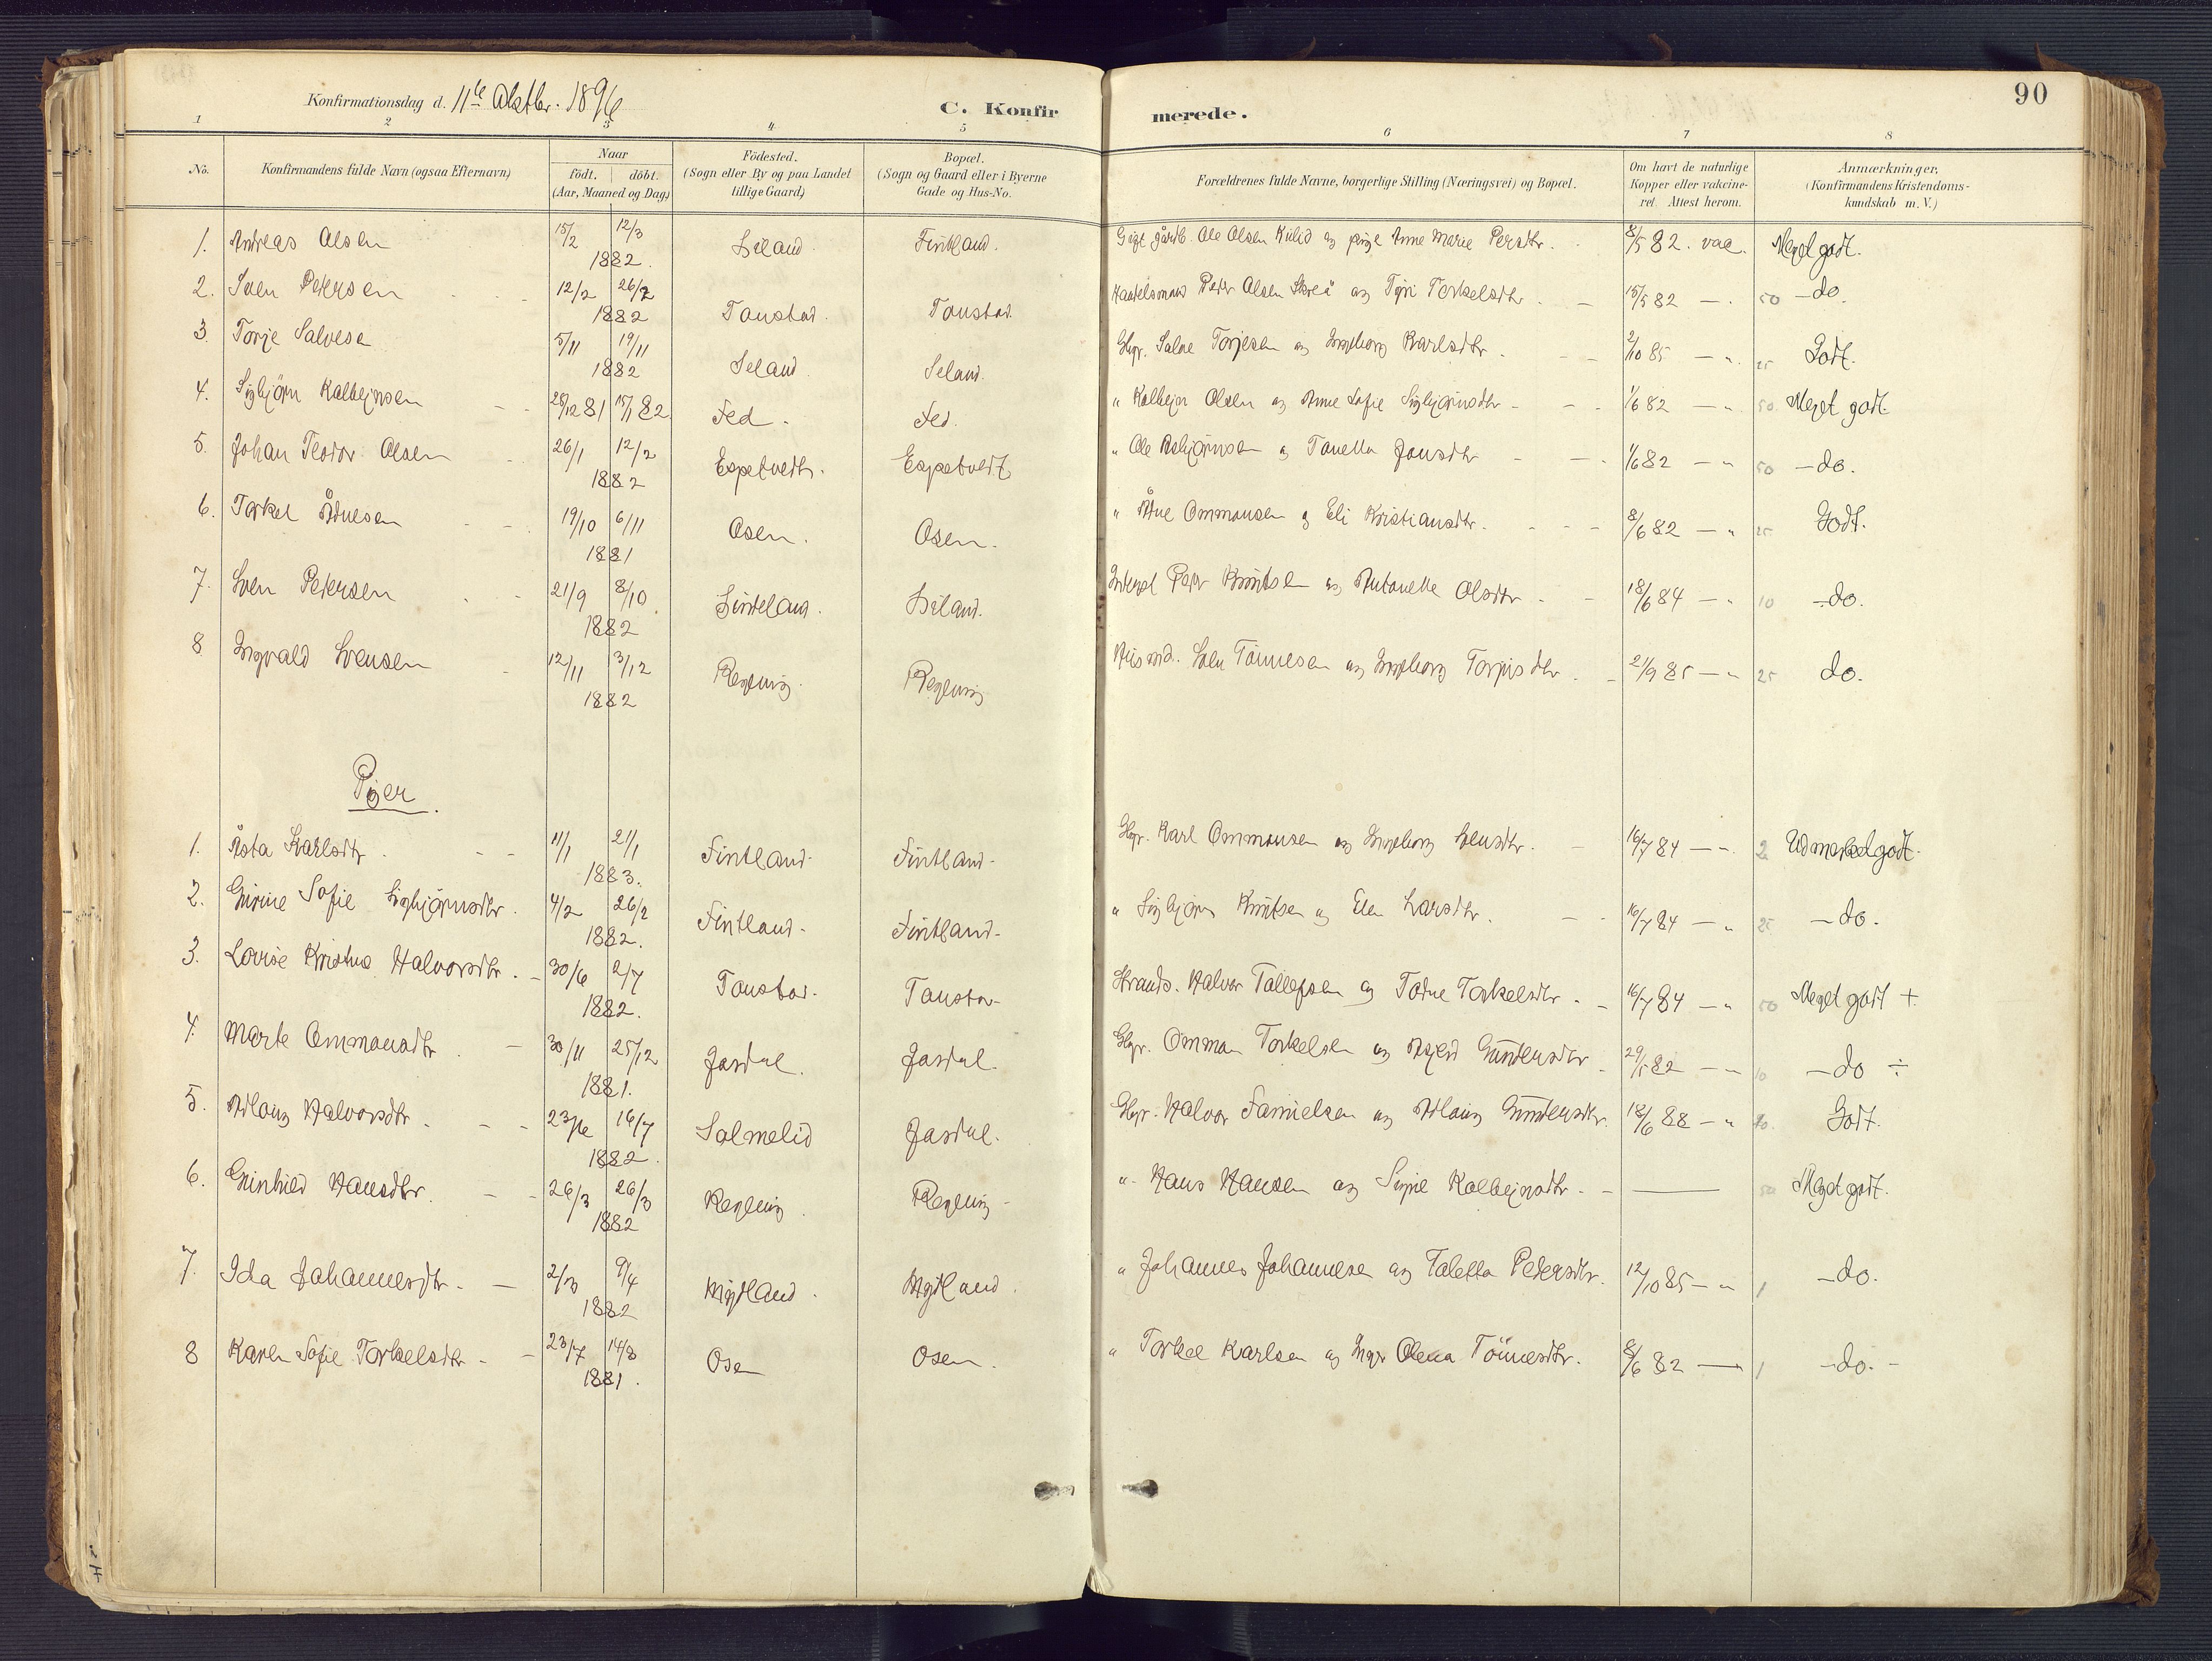 90
Konfirmationsdag d. 11te Oktbr. 1896
C. Konfirmerede.
1 2 3 4 5 6 7 8
No. Konfirmandens fulde Navn (ogsaa Efternavn) Naar födt. döbt. (Aar, Maaned og Dag) Födested. (Sogn eller By og paa Landet tillige Gaard) Bopæl. (Sogn og Gaard eller i Byerne Gade og Hus-No. Forældrenes fulde Navne, borgerlige Stilling (Næringsvei) og Bopæl. Om havt de naturlige Kopper eller vakcineret. Attest herom. Anmærkninger. (Konfirmandens Kristendomskundskab m. V.)
1. Andreas Olsen 15/2 12/3 1882. Fintland. Ole Olsen og pige Anne Marie Persdtr. 8/5 82. vac. Meget godt.
2. Sven Petersen 12/2 26/2 1882 Tonstad. Tonstad Peder Olsen Skreå og Tyri Torkelsdtr. 15/5 82 — 50 — do.
3. Torje Salvesen 5/11 19/11 1882 Seland Seland. Gbgr. Salve Torjesen og Ingeborg Karlsdtr. 2/10 85 — " 25 Godt.
4. Sigbjörn Kolbejnsen 28/12 81 15/1 82 Fed. Fed. " Kolbejn Olsen og Anne Sofie Sigbjörnsdtr. 1/6 82 — " 50. Meget godt.
5. Johan Teodor Olsen 26/1 12/2 1882 Espetvedt. Espetvedt " Ole Asbjörnsen og Tonella Jonsdtr 1/6 82 — " 50 — do.
6. Torkel Ådnesen 19/10 6/11 1881 Osen. Osen. " Ådne Ommonsen og Eli Kristiansdtr. 8/6 82 — " 25 Godt.
7. Sven Petersen 21/9 8/10 1882 Peder Knutsen og Antonette Olsdtr 18/6 84 — " 10 — do.
8 Ingvald Svensen 12/11 3/12 1882 Regevig. Regevig Husmd. Sven Tönnesen og Ingeborg Torjusdtr. 2/9 85 — " 25 do.
Piger.
1. Åsta Karlsdtr. 11/1 21/1 1883. Fintland. Fintland. Gbgr. Karl Ommonsen og Ingeborg Svensdtr. 16/7 84 — " 2 Udmerket godt.
2. Gurine Sofie Sigbjörnsdtr. 4/2 26/2 1882. Fintland. Fintland. " Sigbjörn Knutsen og Elen Larsdtr. 16/7 84 — " 25 — do.
3. Lovise Kristine Halvorsdtr. 30/6 9/7 1882. Tonstad. Tonstad Halvor Tallefsen og Todne Torkelsdtr. 16/7 84 — " 50 Meget godt +
4. Marte Ommonsdtr. 30/11 25/12 1881. Josdal. Josdal. Gbgr. Ommon Torkelsen og Asjerd Gundersdtr. 29/5 82 — " 10 — do ÷
5. Adlaug Halvorsdtr. 23/6 16/7 1882. Salmelid Josdal. Gbgr. Halvor Danielsen og Adlaug Gundersdtr. 18/6 88 — " 10. Godt.
6. Gunhild Hansdtr. 26/3 26/3 1882 Regevig. Regevig " Hans Hansen og Signe Kolbejnsdtr. — 50 Meget godt.
7. Ida Johannesdtr. 2/3 9/4 1882 Mydland. Mydland. " Johannes Johannesen og Taletta Pedersdtr. 12/10 85 — " 1 — do.
8 Karen Sofie Torkelsdtr. 23/7 14/8 1881. Osen Osen. " Torkel Karlsen og Inger Olena Tönnesdtr. 8/6 82 — 1 — do. —